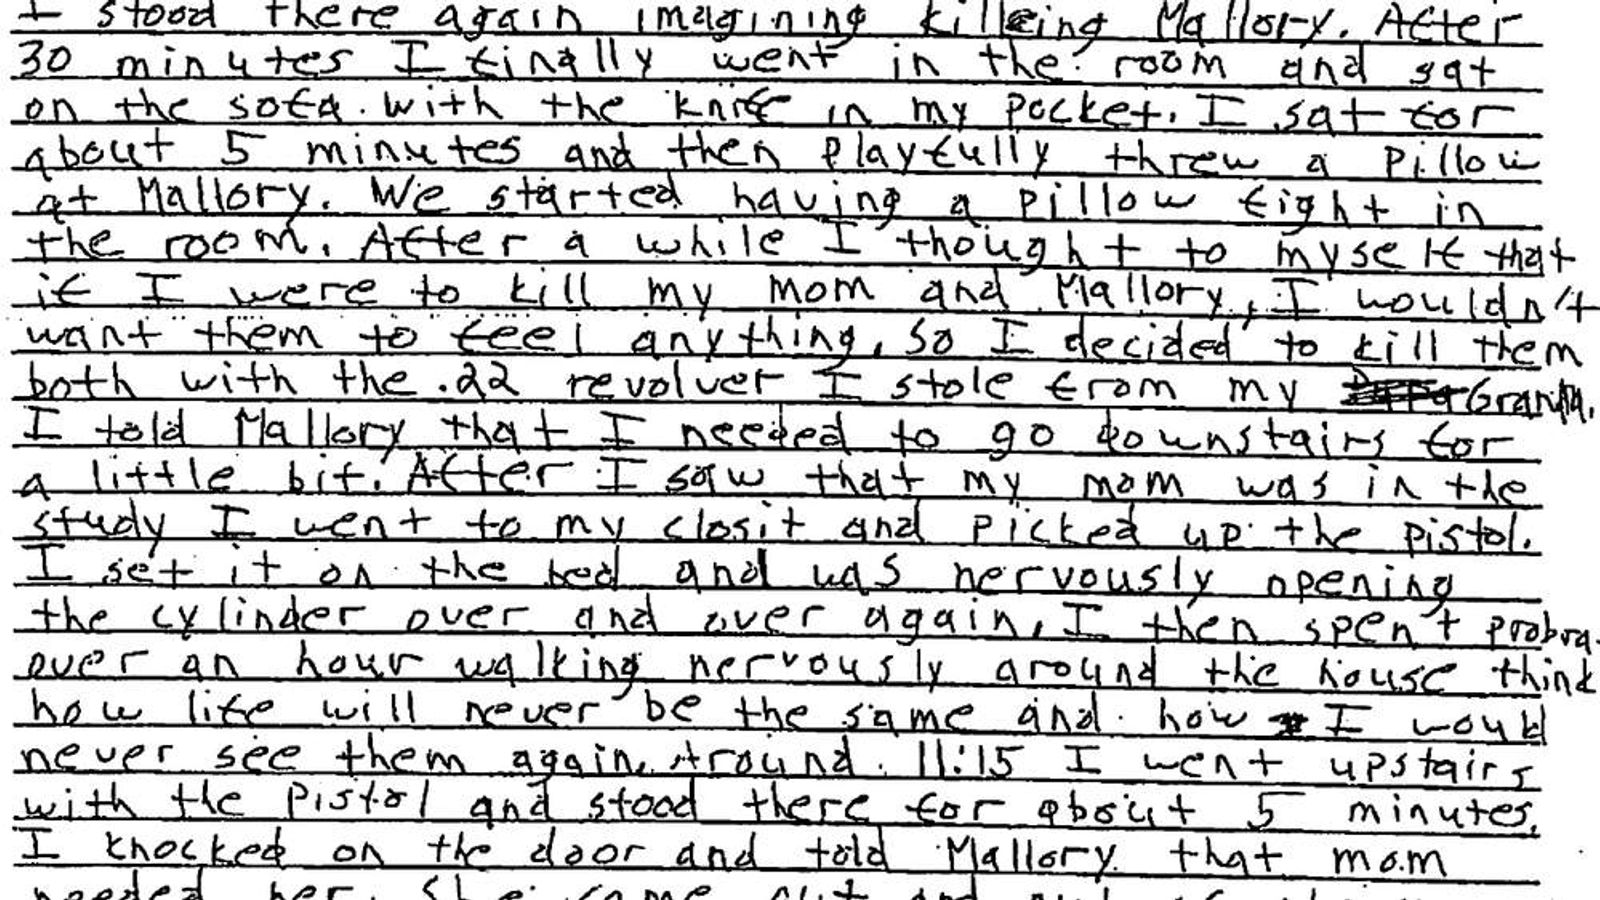 I stood there again imagining killeing Mallory. After
30 minutes I finally went in the room and sat
on the sofa. with the knife in my pocket. I sat for
about 5 minutes and then playfully threw a pillow
at Mallory. We started having a pillow fight in
the room. After a while I thought to myself that
if I were to kill my mom and Mallory, I wouldn't
want them to feel anything, so I decided to kill them
both with the .22 revolver I stole from my
I told Mallory that I needed to go downstairs for
a little bit. After I saw that my mom was in the
study I went to my closit and picked up the pistol.
I set it on the bed and was nervously opening
the cylinder over and over again. I then spent probra
over an hour walking nervously around the house think
how life will never be the same and how I would
never see them again. Around 11:15 I went upstairs
with the pistol and stood there for about 5 minutes.
I knocked on the door and told Mallory that mom
needed her. She came out and